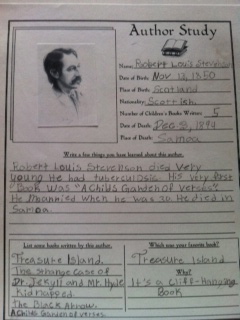 Author Study
Name: Robert Louis Stevenson
Date of Birth: Nov 13, 1850
Place of Birth: Scotland
Nationality: Scottish
Number of Children's Books Written: 5
Date of Death: Dec 3, 1894
Place of Death: Samoa
Write a few things you have learned about this author.
Robert Louis Stevenson died very
young He had tuberculosis His very first
Book was "A Childs Garden of verses"
He married when he was 30. He died in
Samoa.
List some books written by this author.
Treasure Island.
The strange case of
Dr. Jekyll and Mr. Hyde
Kidnapped.
The Black Arrow.
A Childs Garden of verses
Which was your favorite book?
Treasure Island
Why?
It's a cliff-Hanging
Book